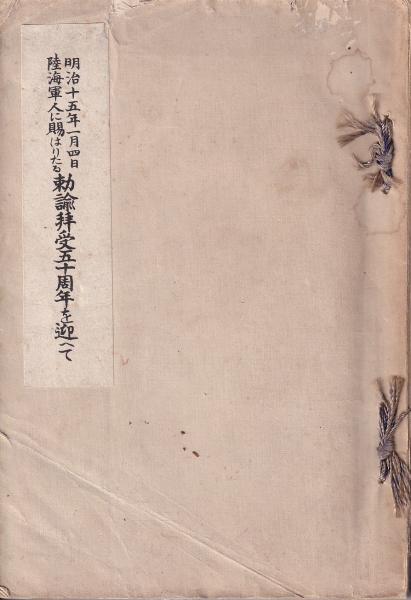 明治十五年一月四日
陸海軍人に賜はりたる
勅諭拝受五十周年を迎へて